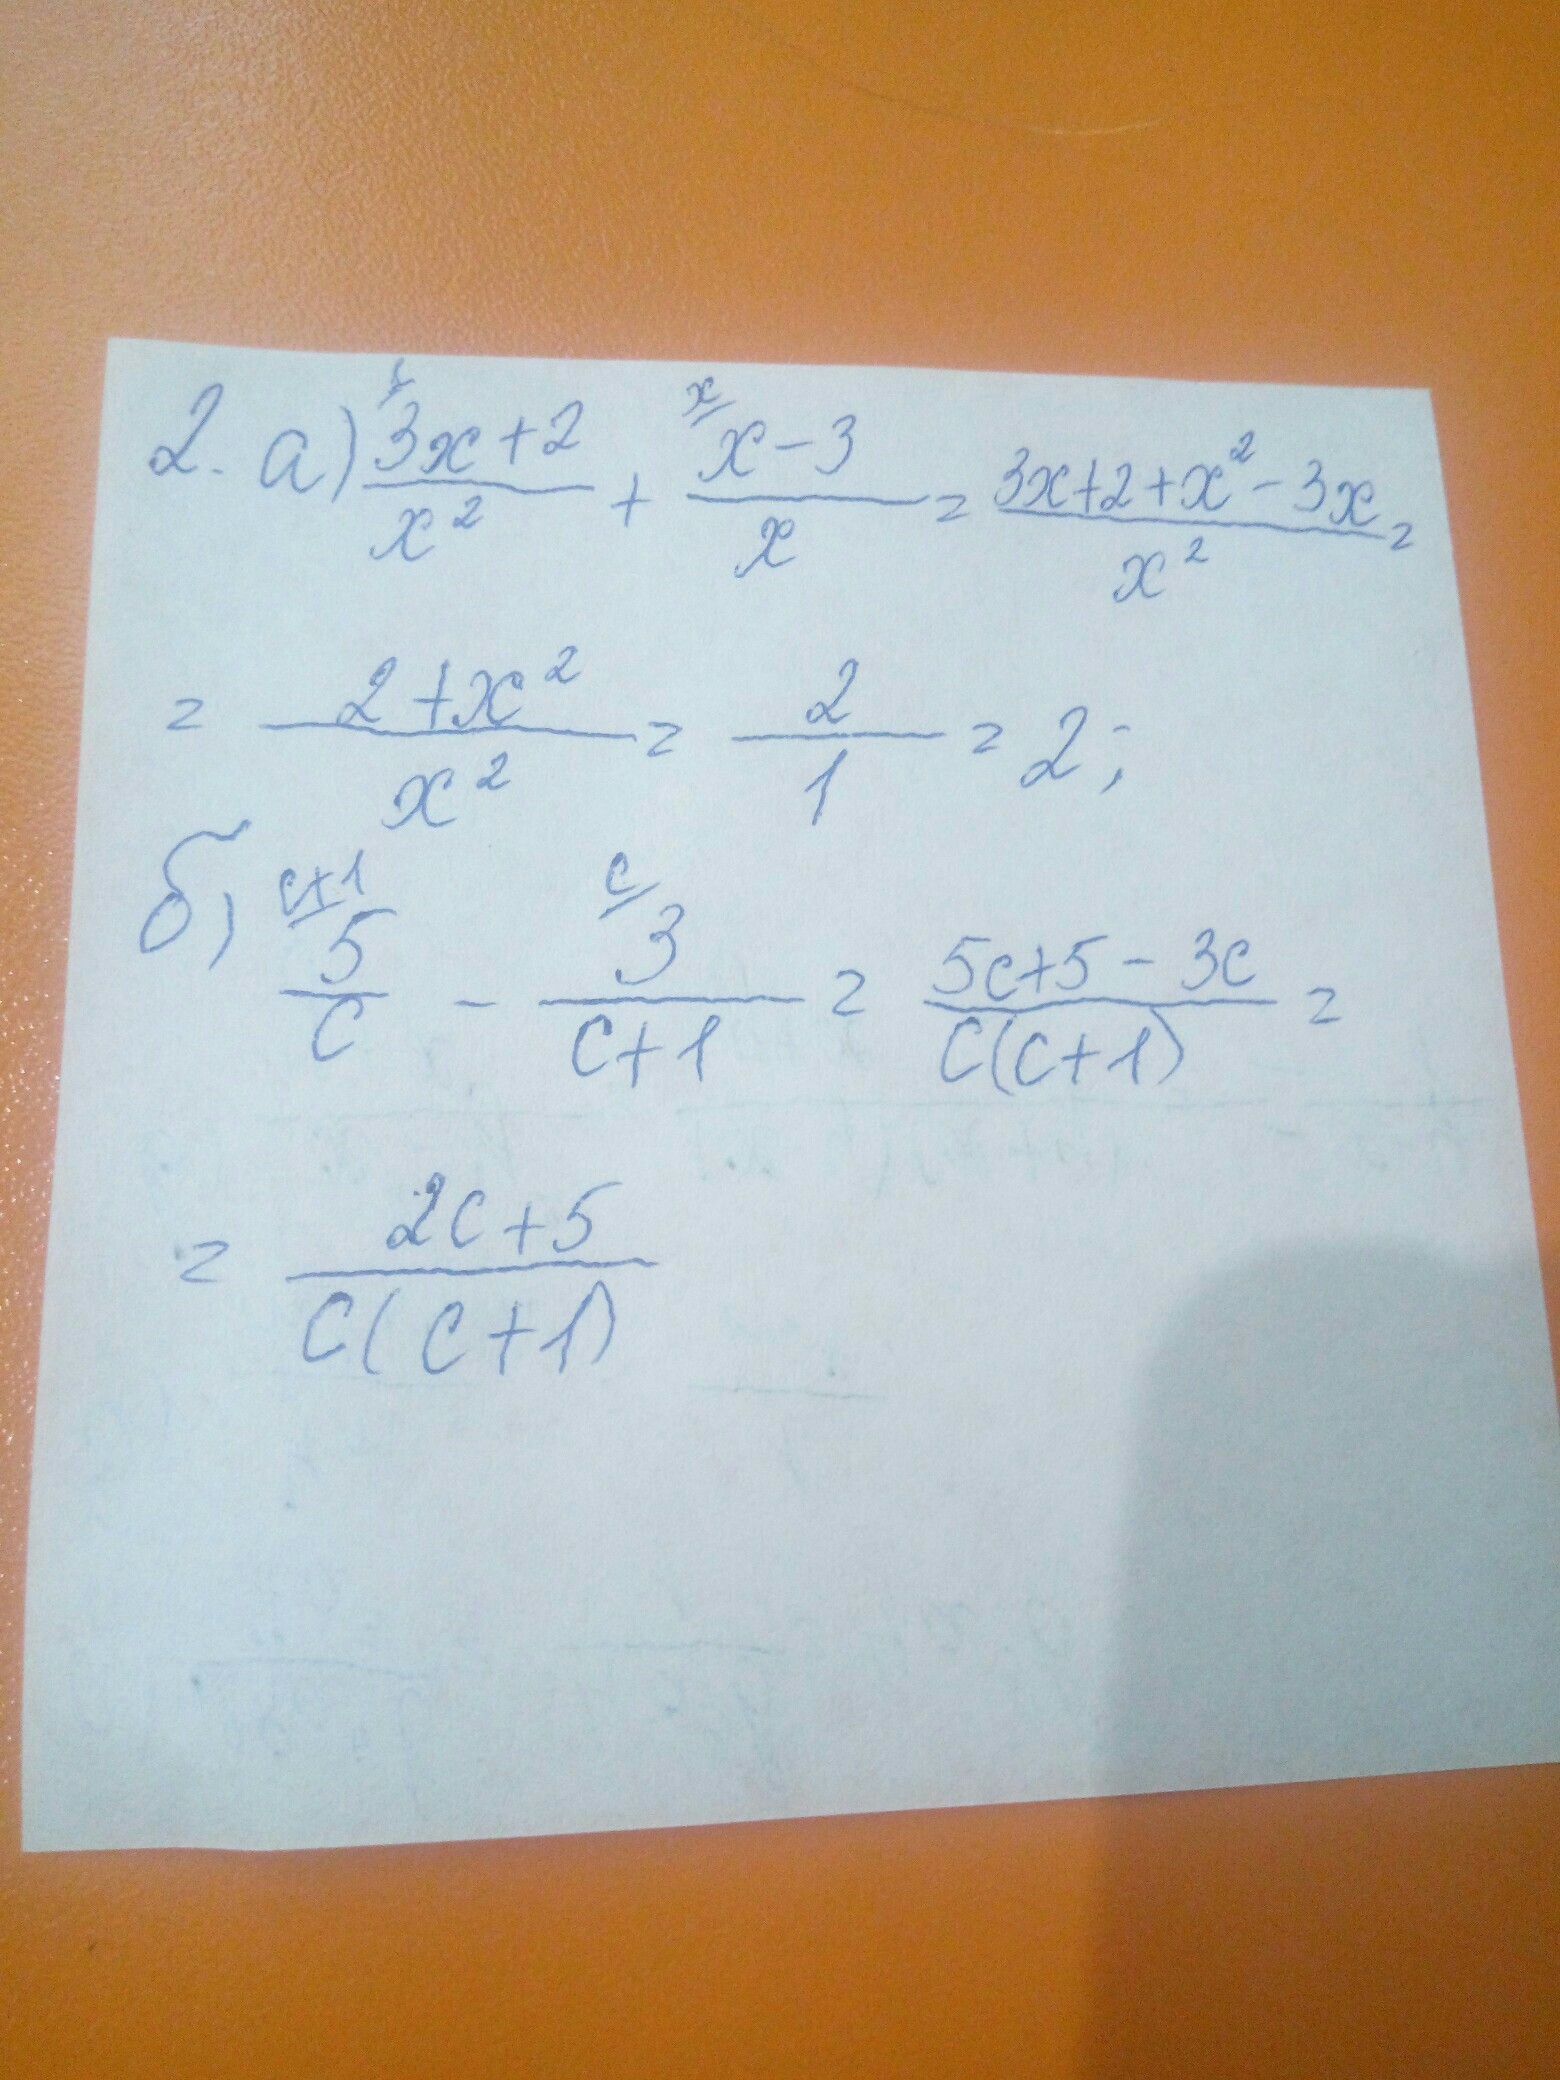 2. а) 1/ (3x+2)/x² + x/ (x-3)/x = (3x+2+x²-3x)/x² =
= (2+x²)/x² = 2/1 = 2;
б) c+1/ 5/c - c/ 3/(c+1) = (5c+5-3c)/(c(c+1)) =
= (2c+5)/(c(c+1))